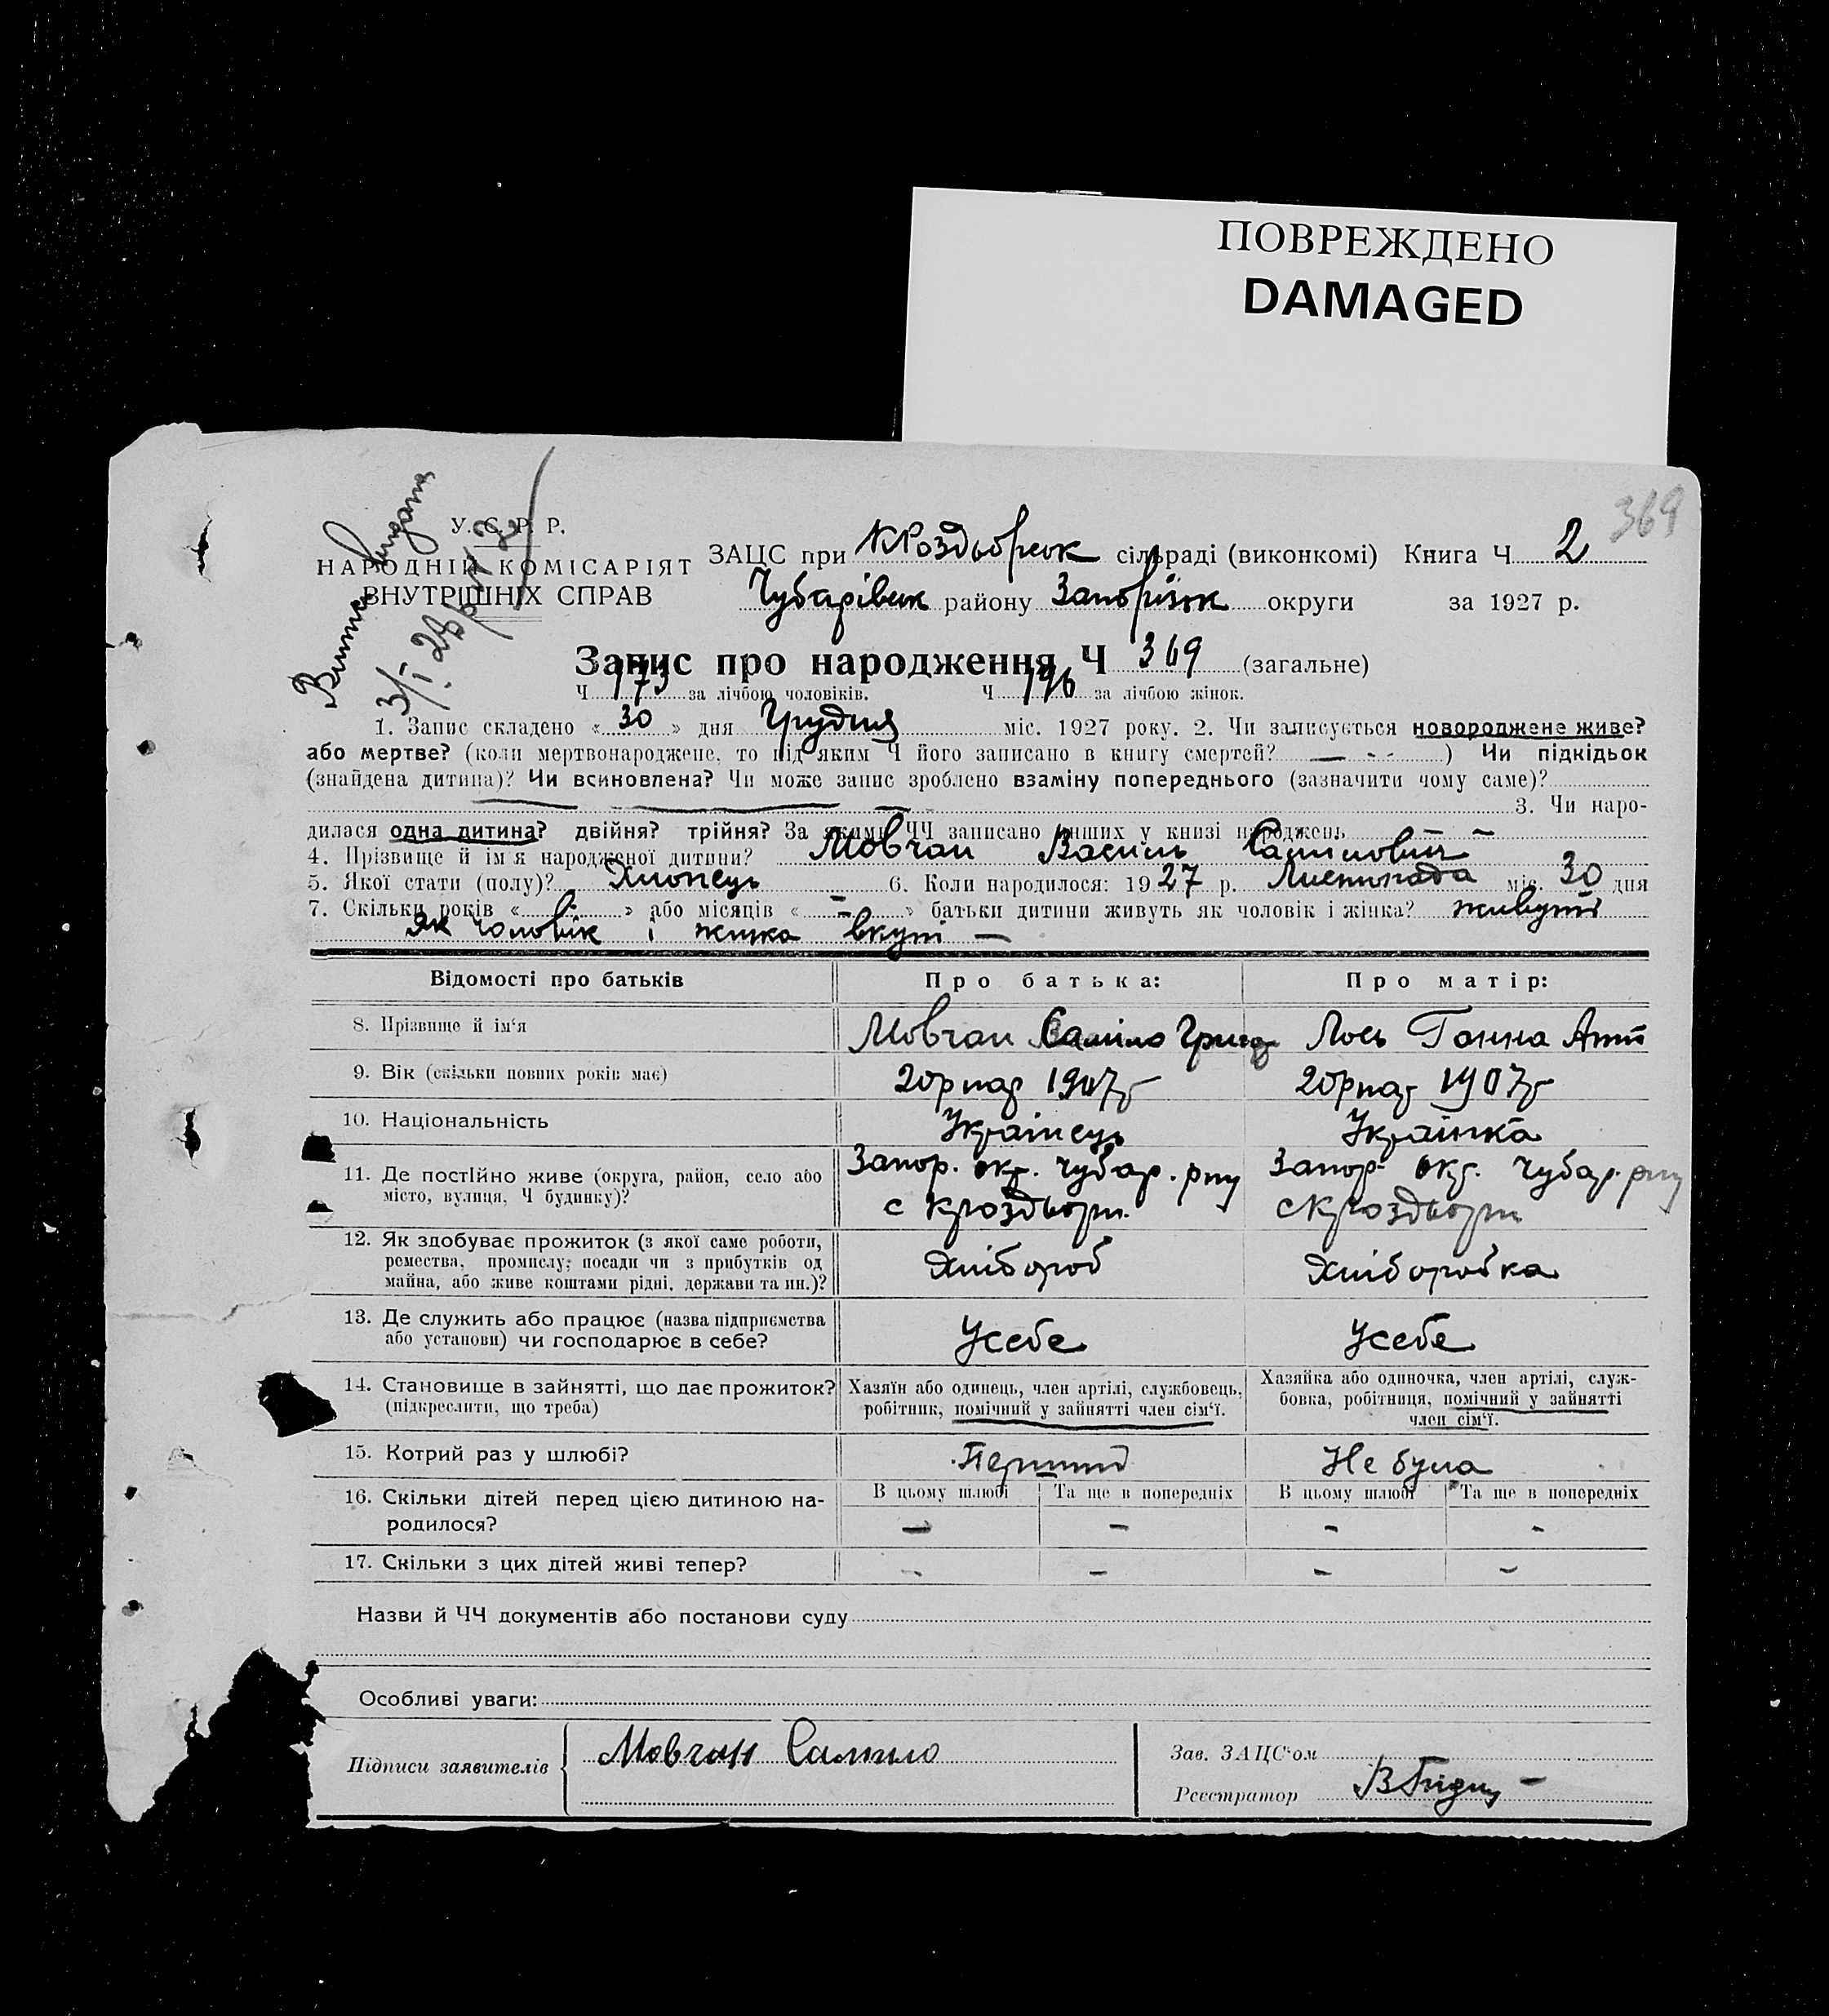 ПОВРЕЖДЕНО
DAMAGED
369
Витяг видано
3/I 28 р.
У. С. Р. Р.
НАРОДНІЙ КОМІСАРІЯТ
ВНУТРІШНІХ СПРАВ
ЗАЦС при КРоздорськ сільраді (виконкомі) Книга Ч 2
Чубарівськ району Запоріжж округи за 1927 р.
Запис про народження Ч 369 (загальне)
Ч 173 за лічбою чоловіків. Ч 196 за лічбою жінок.
1. Запис складено « 30 » дня Грудня міс. 1927 року. 2. Чи записується новороджене живе?
або мертве? (коли мертвонароджене, то під яким Ч його записано в книгу смертей? — - - ) Чи підкідьок
(знайдена дитина)? Чи всиновлена? Чи може запис зроблено взаміну попереднього (зазначити чому саме)?
3. Чи наро-
дилася одна дитина? двійня? трійня? За якими ЧЧ записано инших у книзі народжень — —
4. Прізвище й ім'я народженої дитини? Мовчан Василь Самілович
5. Якої стати (полу)? Хлопець 6. Коли народилося: 1927 р. Листопада міс. 30 дня
7. Скільки років « » або місяців « - » батьки дитини живуть як чоловік і жінка? живуть
як чоловік і жінка вкупі —
Відомості про батьків Про батька: Про матір:
8. Прізвище й ім'я Мовчан Саміло Григор Лось Ганна Ант
9. Вік (скільки повних років має) 20 1907 20 1907
10. Національність Українець Українка
11. Де постійно живе (округа, район, село або місто, вулиця, Ч будинку)? Запор. окр. Чубар. рну Запор. окр. Чубар. рну
с Кроздорт с Кроздорт
12. Як здобуває прожиток (з якої саме роботи,
ремества, промислу, посади чи з прибутків од
майна, або живе коштами рідні, держави та ин.)? Хлібороб Хліборобка
13. Де служить або працює (назва підприємства
або установи) чи господарює в себе? Усебе Усебе
14. Становище в зайнятті, що дає прожиток?
(підкреслити, що треба)
Хазяїн або одинець, член артілі, службовець,
робітник, помічний у зайнятті член сім'ї.
Хазяйка або одиночка, член артілі, служ-
бовка, робітниця, помічний у зайнятті
член сім'ї.
15. Котрий раз у шлюбі? Перший Не була
16. Скільки дітей перед цією дитиною на-
родилося?
В цьому шлюбі Та ще в попередніх В цьому шлюбі Та ще в попередніх
— — — -
17. Скільки з цих дітей живі тепер? - — — —
Назви й ЧЧ документів або постанови суду
Особливі уваги:
Підписи заявителів Мовчан Самило
Зав. ЗАЦС'ом
Реєстратор